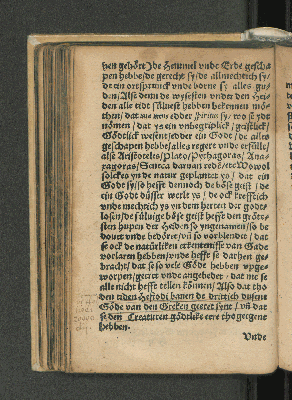 hen gehört) de Hemmel vnde Erde gescha
pen hebbe/ de gerecht sy/ de allmechtich sy/
de ein ortsprunck vnde borne sy alles gu-
den/ Alse denn de wysesten vnder den Hei-
den alle tidt süluest hebben bekennen mö-
then/ dat mens edder spiritus sy/ wo se ydt
nömen/ dat ys ein vnbegriplick/ geistlick/
Gödtlick wesent/ dat alle dinck
geschapen hebbe/ alles regere vnde erfülle/
alse Aristoteles/ Plato/ Pythagoras/ Ana-
xagoras/ Seneca daruan reden/ Wowol
solckes yn de natur geplantet ys/ dat ein
Godt sy/ so hefft dennoch de böse geist/ de
ein Godt düsser werlt ys/ de ock krefftich
vnde mechtich ys yn dem herten der godt-
losen/ de sülvige böse geist hefft den grötte-
sten hupen der Heiden so yngenamen
vnde vorblendet/ dat
se ock de natürliken erkentenisse van Gade
vorlaren hebben/ vnde hefft se dathen ge-
bracht/ dat se so vele Göde hebben vpge-
worpen/ geeret vnde angebedet/ dat me se
alle nicht hefft tellen können/ Also dat tho
den tiden Hesiodi bauen de dörtich dusent
Göde van den Greken geeret synt/ vn dat
se den Creaturen gödtlike eere tho gegeuen
hebben.
Vnde